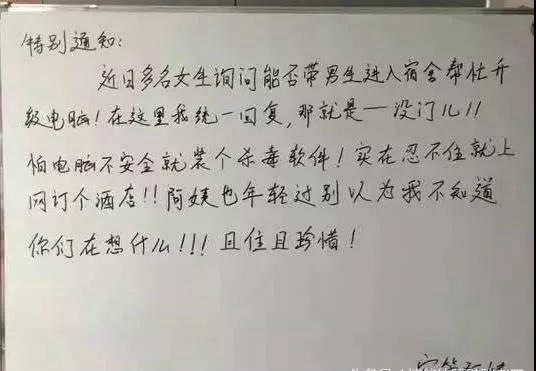 特别通知:
近日多名女生询问能否带男生进入宿舍帮忙升
级电脑!在这里我统一回复,那就是一没门儿!!
怕电脑不安全就装个杀毒软件!实在忍不住就上
网订个酒店!!阿姨也年轻过别以为我不知道
你们在想什么!!!且住且珍惜!